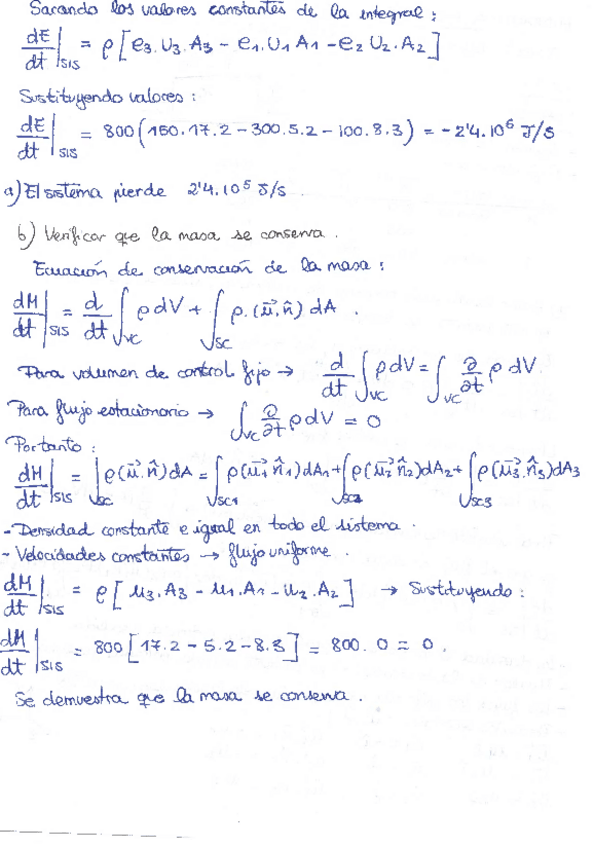 Sacando los valores constantes de la integral:
dE/dt|SIS = ρ[e3.U3.A3 - e1.U1 A1 - e2 U2.A2]
Sustituyendo valores:
dE/dt|SIS = 800(150.17.2 - 300.5.2 - 100.8.3) = -2'4.10^6 J/s
a) El sistema pierde 2'4.10^5 J/s.
b) Verificar que la masa se conserva.
Ecuación de conservación de la masa:
dM/dt|SIS = d/dt ∫VC ρ dV + ∫SC ρ.(u⃗.n̂) dA.
Para volumen de control fijo → d/dt ∫VC ρ dV = ∫VC ∂/∂t ρ dV.
Para flujo estacionario → ∫VC ∂/∂t ρ dV = 0
Por tanto:
dM/dt|SIS = ∫SC ρ(u⃗.n̂)dA = ∫SC1 ρ(u⃗1 n̂1)dA1 + ∫SC2 ρ(u⃗2 n̂2)dA2 + ∫SC3 ρ(u⃗3.n̂3)dA3
- Densidad constante e igual en todo el sistema.
- Velocidades constantes → flujo uniforme.
dM/dt|SIS = ρ[u3.A3 - u1.A1 - u2.A2] → Sustituyendo:
dM/dt|SIS = 800[17.2 - 5.2 - 8.3] = 800.0 = 0.
Se demuestra que la masa se conserva.